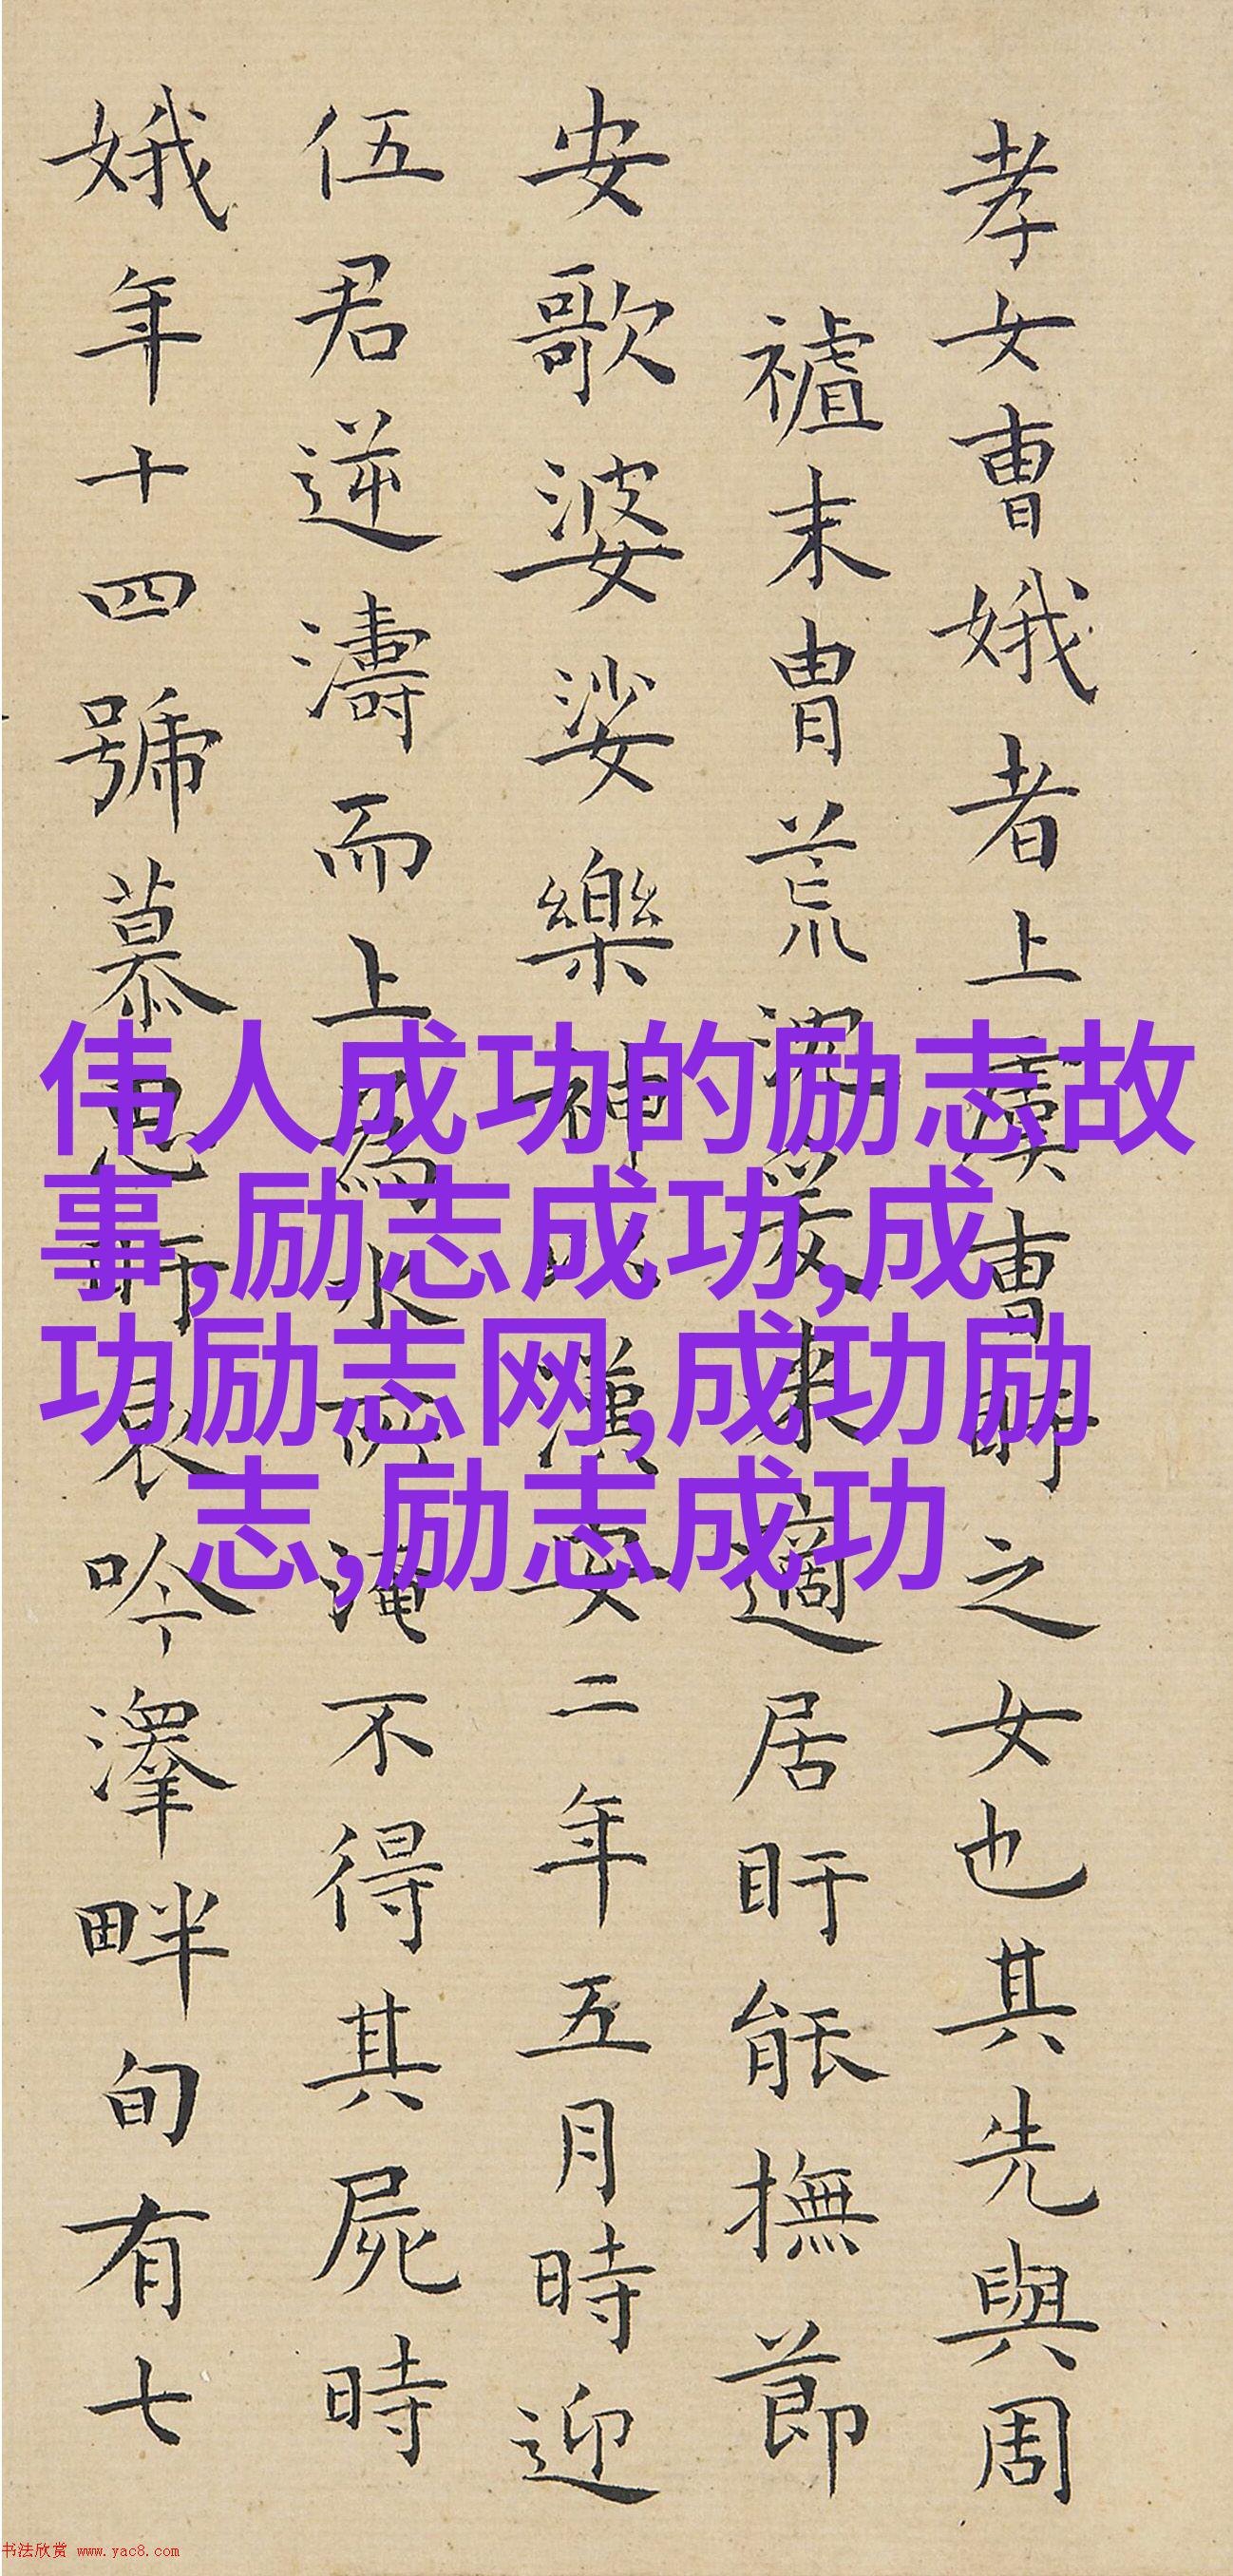 孝女曹娥者上虞曹盱之女也其先與周
禇末胄荒波爰来適居盱能撫節
安歌婆娑樂神以漢安二年五月時迎
伍君逆濤而上為水所淹不得其屍時
娥年十四號慕思盱哀吟澤畔旬有七
伟人成功的励志故
事,励志成功,成
功励志网,成功励
志,励志成功
书法欣赏 www.yac8.com